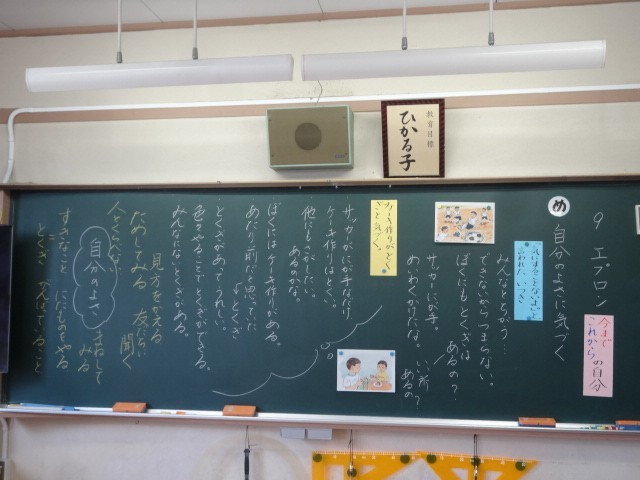 教育目標
ひかる子
め
9 エプロン
自分のよさに気づく
今まで
これから の自分
気にすることないよ。と
言われた いつき
みんなとちがう…
できないからつまらない。
ぼくにもとくぎは
あるの？
サッカーにが手。
めいわくかけたな。
いい所
あるの？
ケーキ作りがとく
ぎと気づく。
サッカーがにが手だけど、
ケーキ作りはとくい。
他にもさがしたい。
あるのかな。
ぼくにはケーキ作りがある。
あたり前だと思ってた
よ とくぎ
とくぎがあってうれしい。
色々やることでとくぎがでてくる。
みんなになにかとくぎがある。
見方をかえる
ためしてみる 友だちに
聞く
人とくらべない
自分のよさ
まねして
みる
すきなこと にがてなものをやる
とくぎ がんばっていること